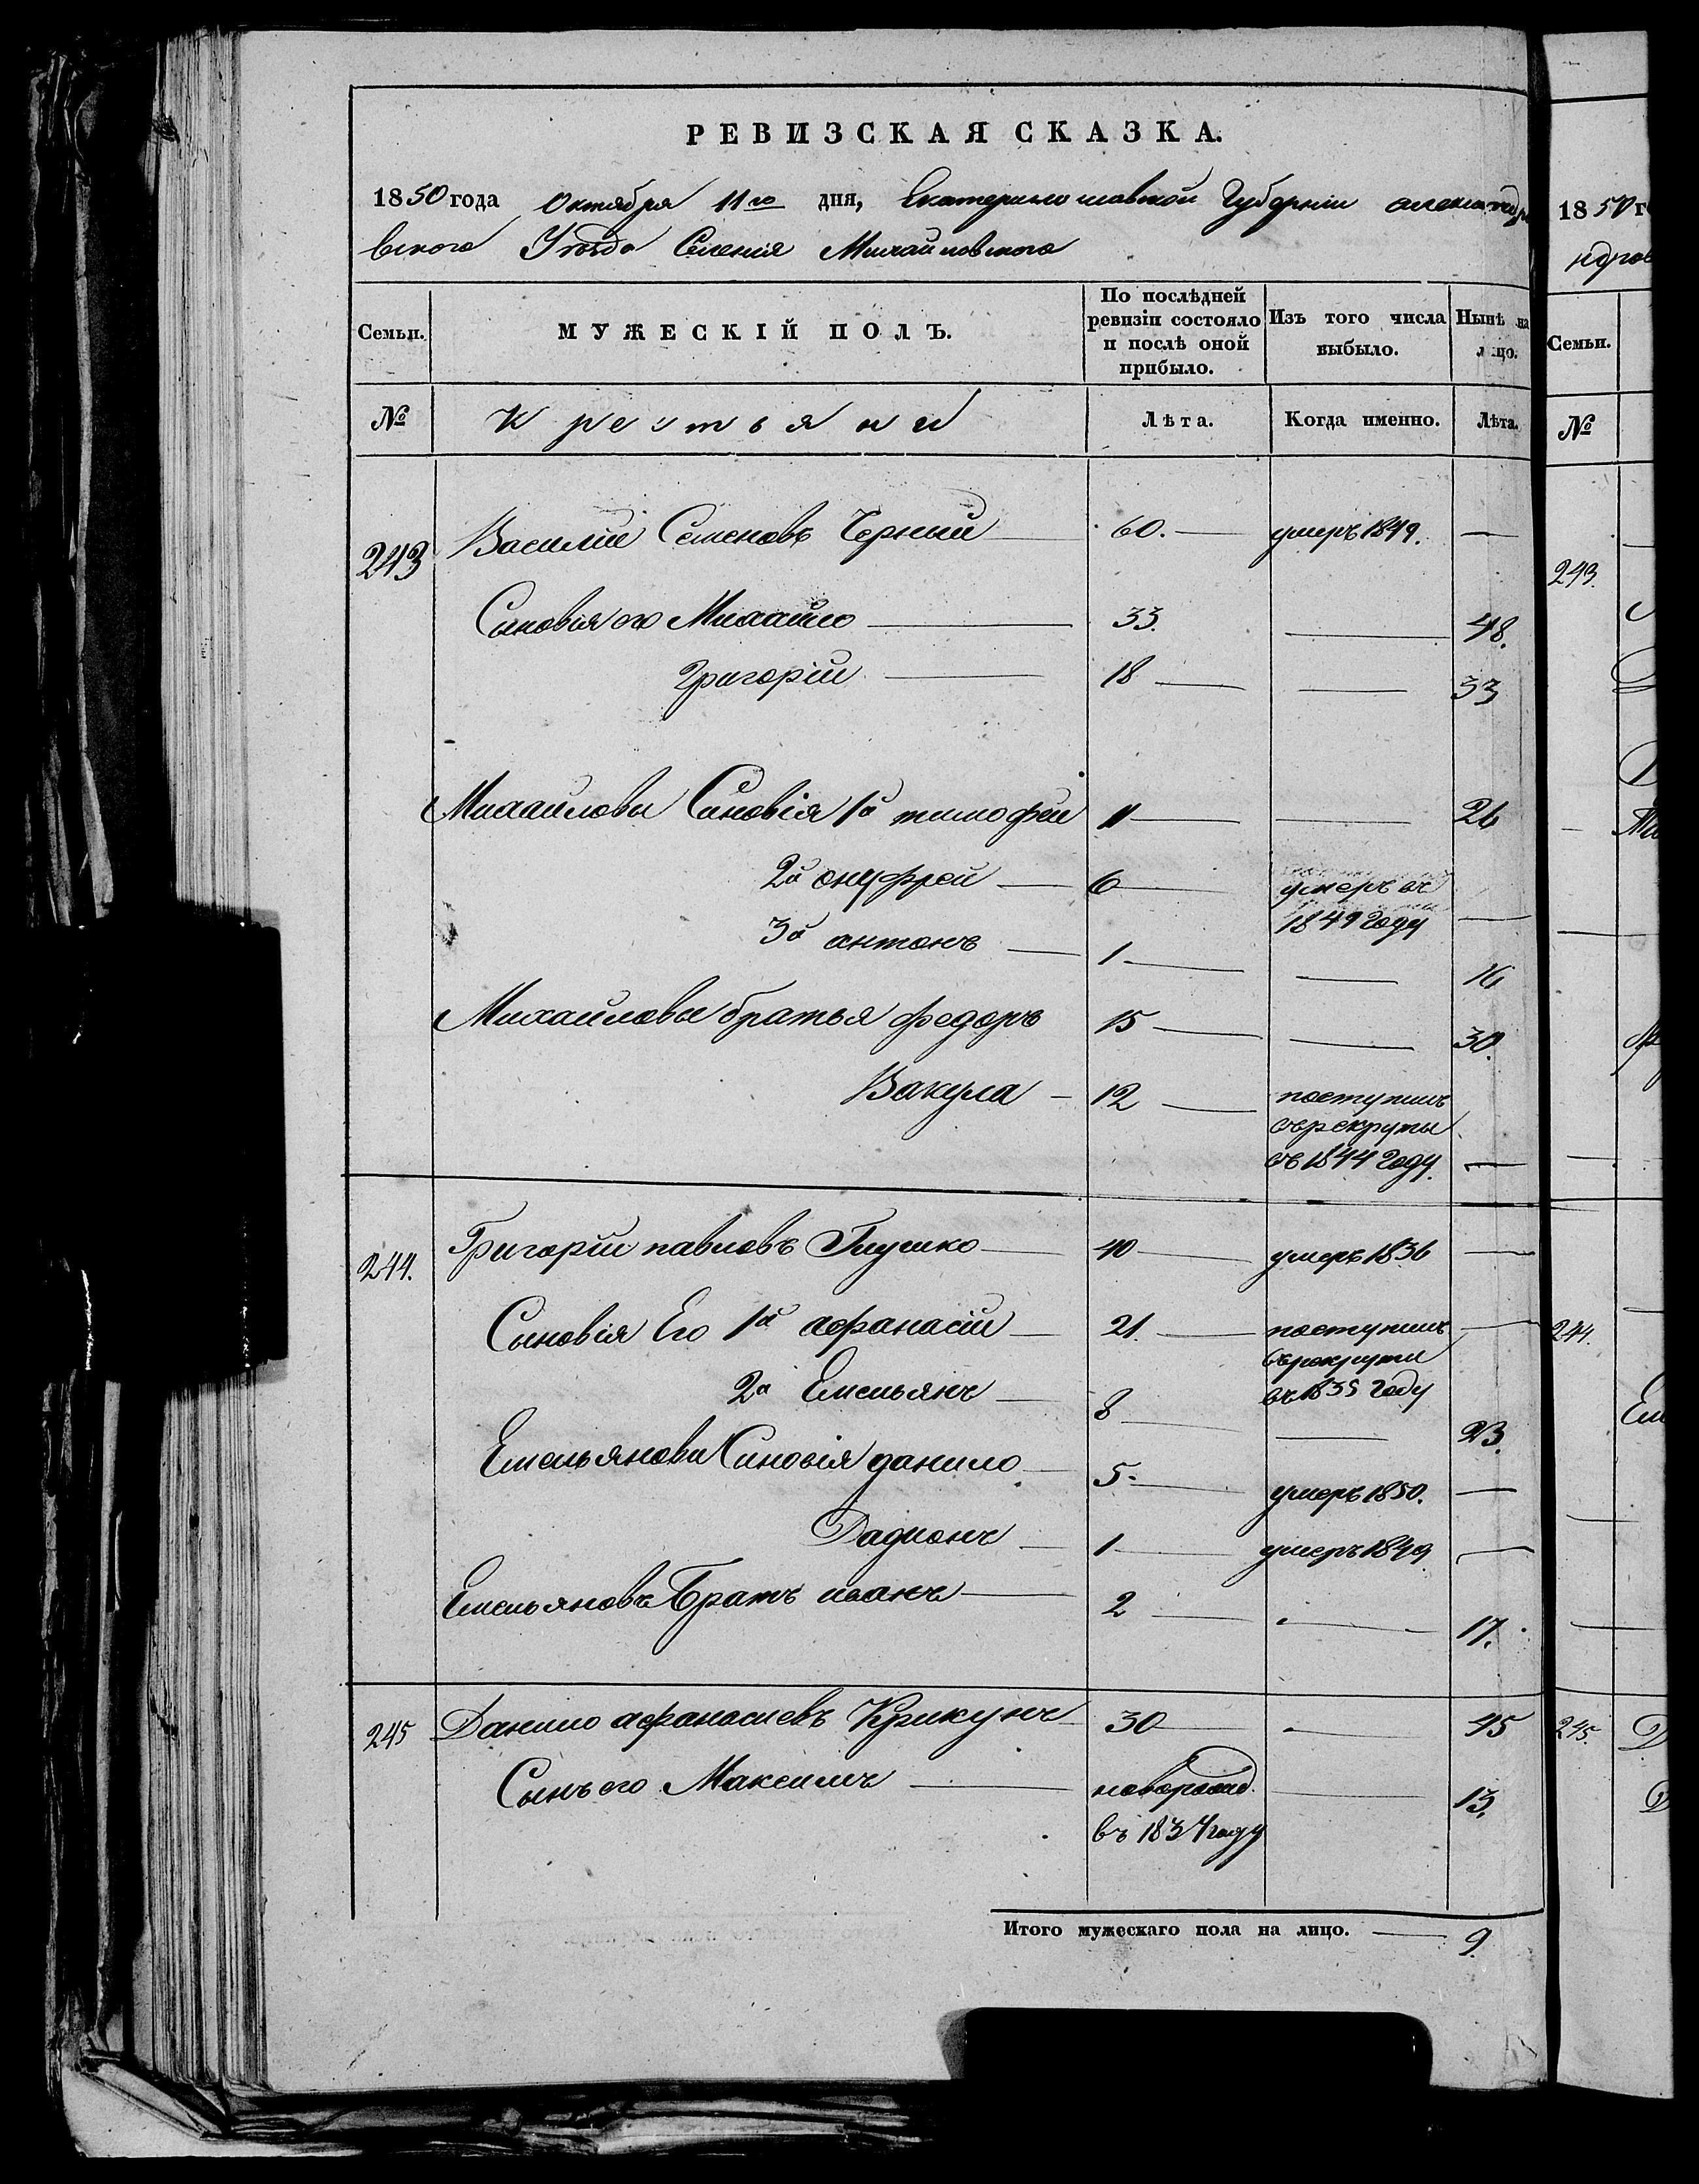 РЕВИЗСКАЯ СКАЗКА.
1850 года Октября 11го дня, Екатеринославской Губерніи александро
вского Уѣзда Селенія Михайловского
Семьи. МУЖЕСКІЙ ПОЛЪ. По послѣдней ревизіи состояло и послѣ оной прибыло. Изъ того числа выбыло. Нынѣ на лицо.
№ Крестьяни Лѣта. Когда именно. Лѣта.
243 Василий Семеновъ Черный 60. — умеръ 1849. —
Сыновія его Михайло — 33. — 48.
Григорій — 18 — — 33
Михайловы Синовія 1й тимофей 11 — — 26
2й онуфрей — 6 — умеръ въ
1849 году —
3й антонъ — 1 — — 16
Михайловы братья федоръ 15 — — 30.
Вакула — 12 — поступилъ
въ рекруты
въ 1844 году. —
244. Григорій павловъ Глушко — 40 — умеръ 1836 —
Сыновія Его 1й афанасій — 21. — поступилъ —
въ рекруты
въ 1835 году
2й Емельянъ — 8 — — 23.
Емельяновы Синовія данило — 5 — умеръ 1850. —
Радионъ — 1 — умеръ 1849 —
Емельяновъ Братъ иванъ — 2 — — 17.
245 Данило афанасиевъ Крикунъ — 30 — 45
Сынъ его Максимъ — новорожд. — 13.
въ 1837 году
Итого мужескаго пола на лицо. — 9.
1850 г
ндров
Семьи.
№
243.
244.
Ем
245. Д